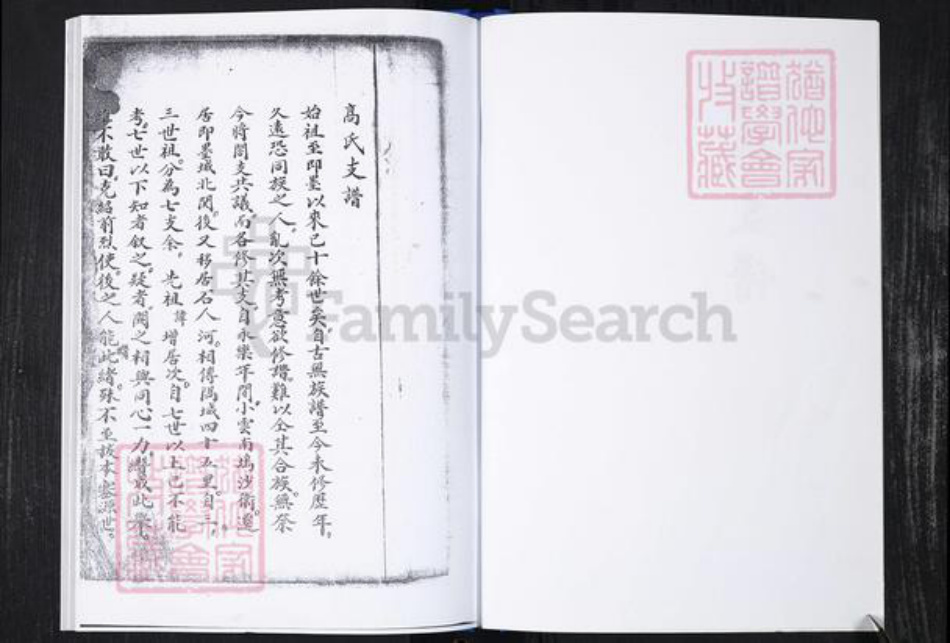 高氏支譜
始祖至即墨以來已十餘世矣自古無族譜至今未修歷年
久遠恐同族之人亂次無考意欲修譜難以仝其合族無奈
今將闔支共議而各修其支自永樂年間小雲南塢沙衛遷
居即墨城北関後又移居石人河相傳隅城四十五里自三
三世祖分為七支余先祖諱增居次自七世以上已不能
考七世以下知者叙之疑者闕之祠與同心一力成此譜
不敢曰克紹前烈使後之人能此緒殊不至拔本塞源世
猶他家譜學會收藏
猶他家譜學會收藏
FamilySearch